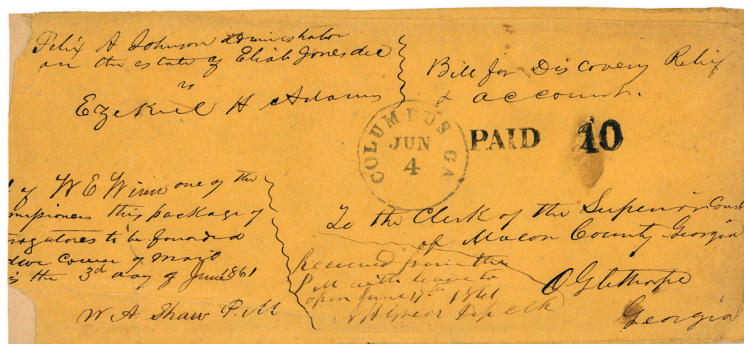 Felix A Johnson administrator
on the estate of Eliab Jones dec
vs
Ezekiel H Adams
Bill for Discovery Relief
& account.
COLUMBUS GA
JUN
4
PAID 10
of W E Winn one of the
this package of
to be
of
the 3rd day of June 1861
W A Shaw P.M
To the Clerk of the Superior Court
of Macon County Georgia
Oglethorpe
Georgia
Received from the
P M with leave to
open June 17th 1861
Dep clk